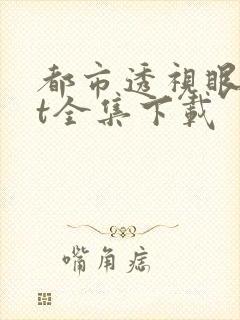 都市透視眼
t全集下載
嘴角痣